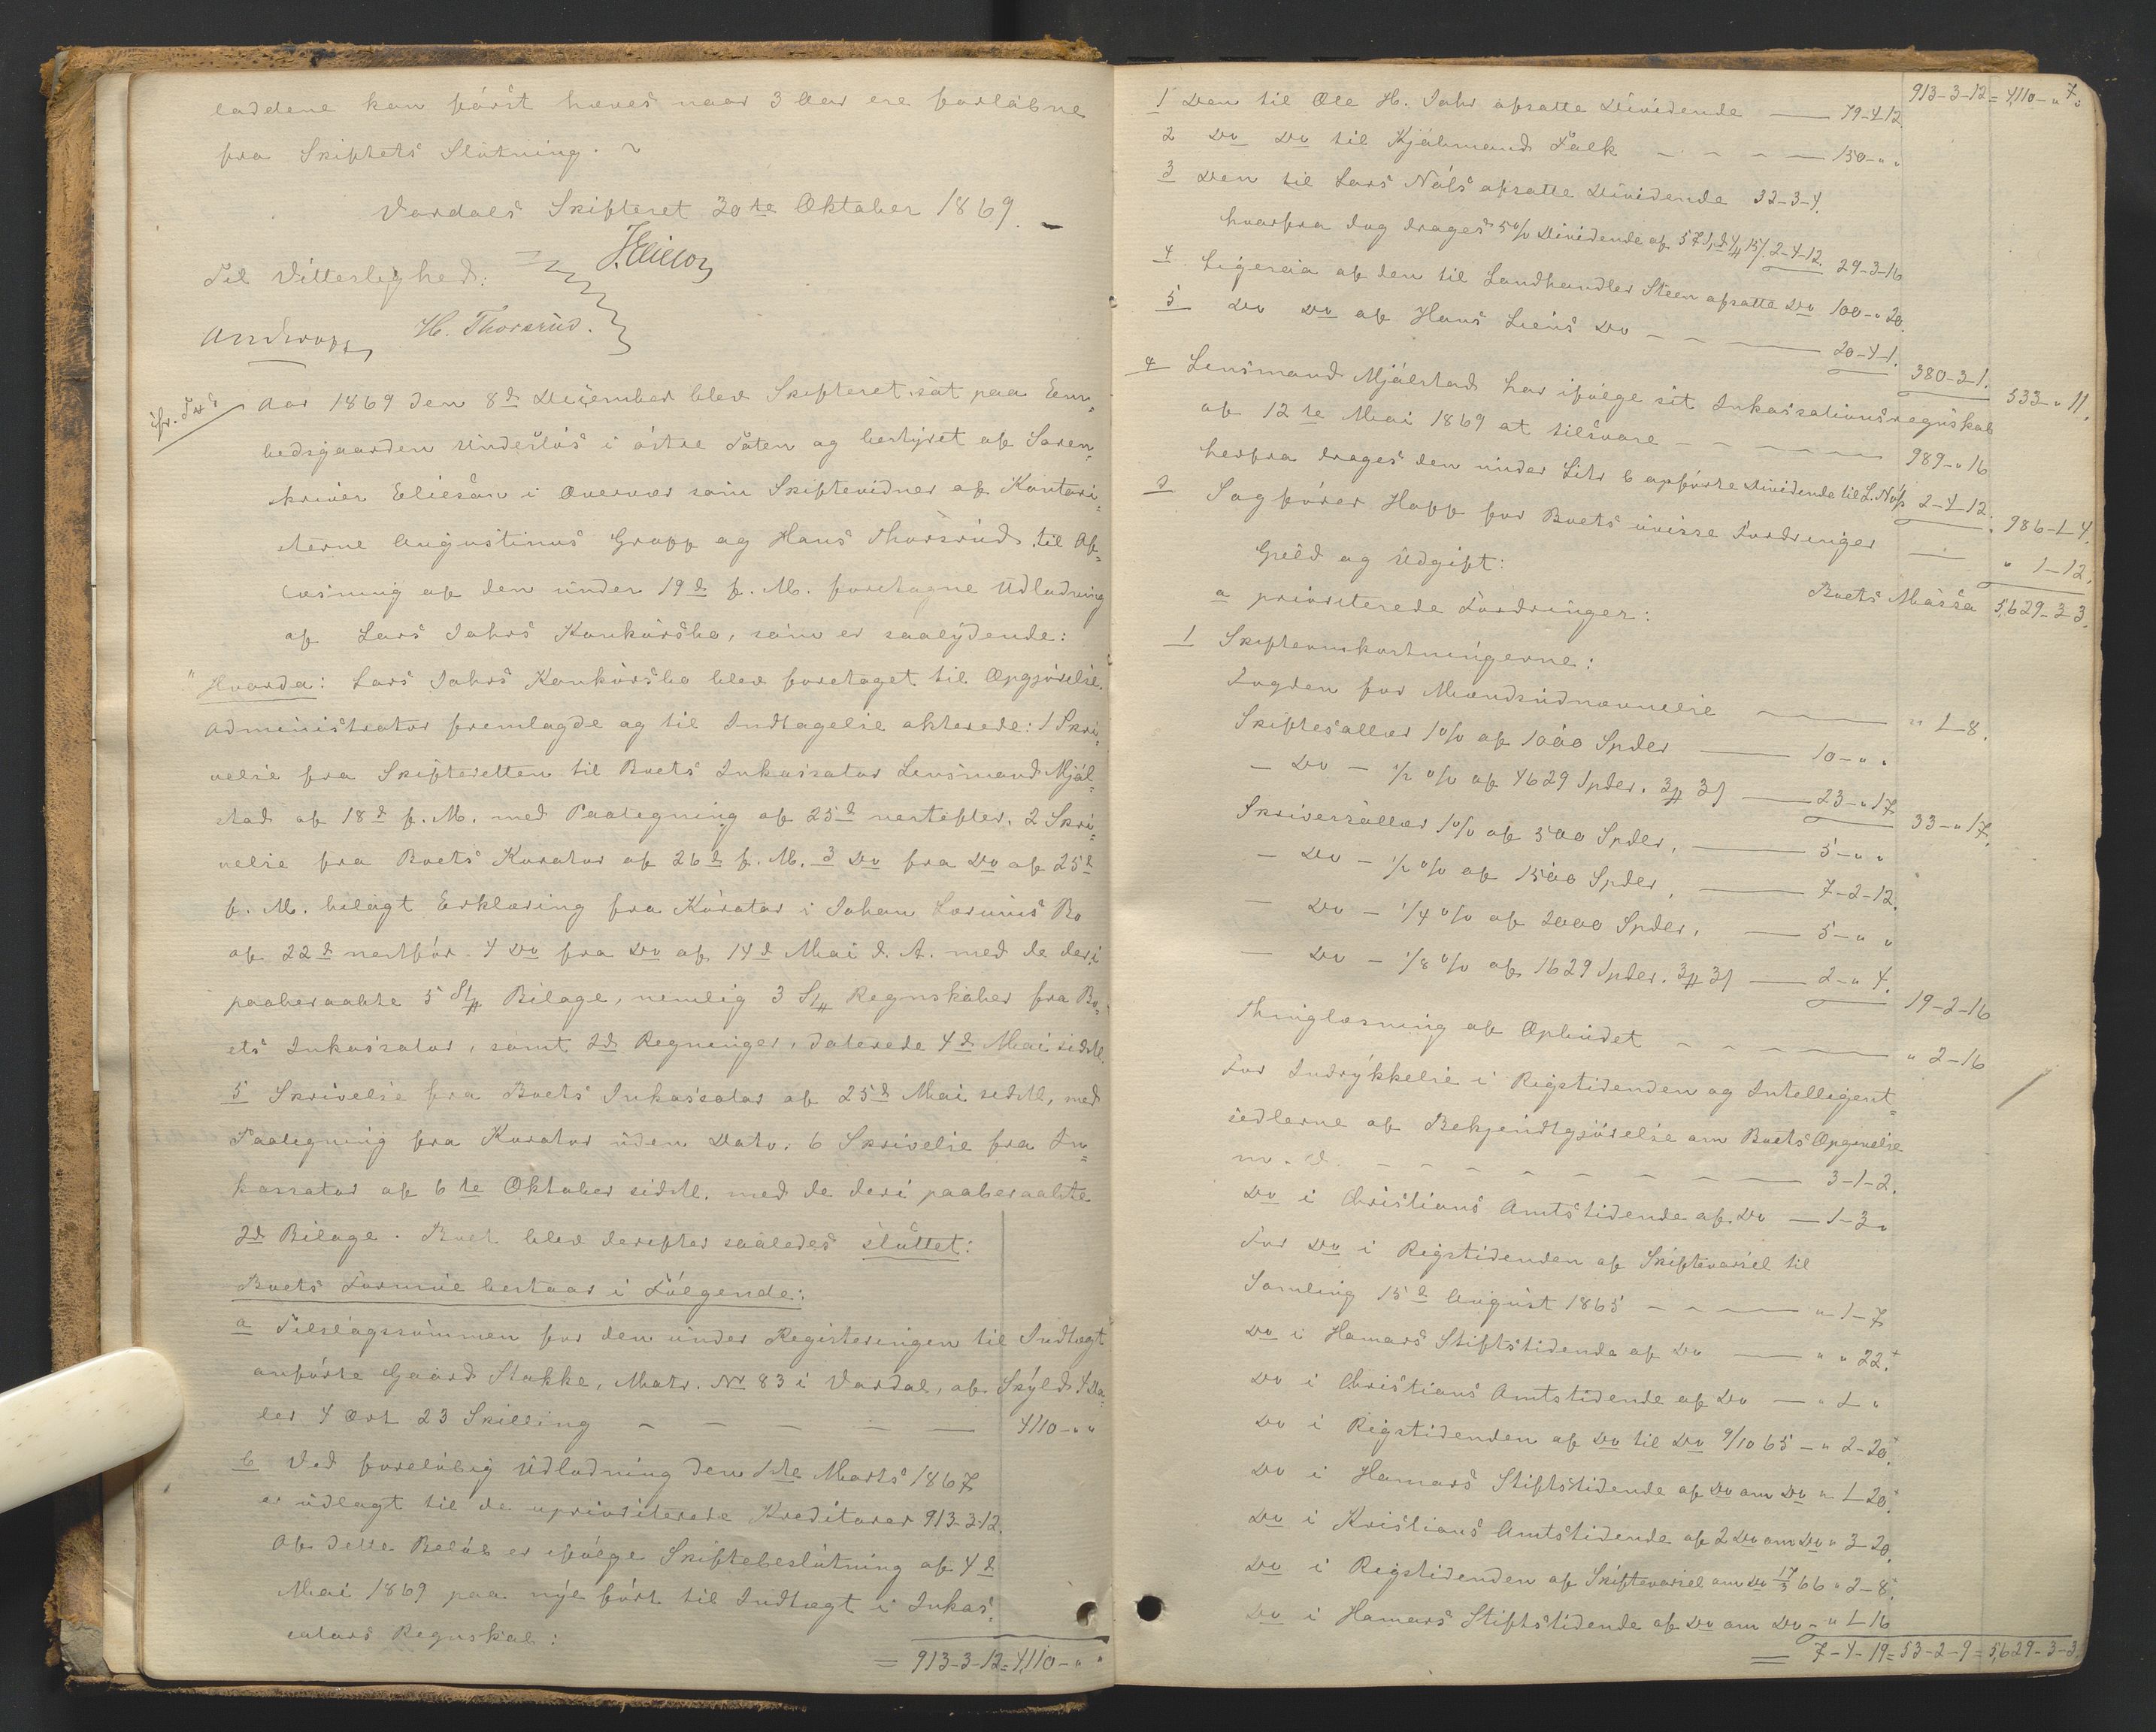 laddene kan først hæves naar 3 Aar ere forløbne
fra Skiftets Slutning.
Vardals Skifteret 30te Oktober 1869.
Til Vitterlighed:
H. Thorsrud.
Aar 1869 den 8d December blev Skifteret sat paa Em-
bedsgaarden Underløs i østre Toten og bestyret af Soren-
kriver Elieson i Overvær som Skiftevidner af Kontori-
sterne Augustinus Gropp og Hans Thorsrud, til Af-
læsning af den under 19d f. M. foretagne Udlodning
af Lars Jahrs Konkursbo, som er saalydende:
"Hvorda: Lars Jahrs Konkursbo blev foretaget til Opgjørelse.
Administrator fremlagde og til Indtagelse akterede: 1 Skri-
velse fra Skifteretten til Boets Inkassator Lensmand Mjøl-
stad af 18d f. M. med Paategning af 25d nestefter. 2 Skri-
velse fra Boets Kurator af 26d f. M. 3 Do fra Do af 25d
f. M. bilagt Erklæring fra Kurator i Johan Larsens Bo
af 22d nestfør. 4 Do fra Do af 14d Mai d. A. med de deri
paaberaabte 5 St Bilage, nemlig 3 St Regnskaber fra Bo-
ets Inkassator, samt 2d Regninger, daterede 4d Mai sidstl.
5 Skrivelse fra Boets Inkassator af 25d Mai sidstl, med
Paategning fra Kurator uden Dato. 6 Skrivelse fra In-
kassator af 6te Oktober sidstl. med de deri paaberaabte
2d Bilage. Boet blev derefter saaledes sluttet:
Boets Formue bestaar i Følgende:
a Tilslagssummen for den under Registeringen til Indtægt
anførte Gaard Stokke, Matr. No 83 i Vardal, af Skyld 4 Da-
ler 4 Ort 23 Skilling — 4110-"-"
b Ved foreløbig Udlodning den 1ste Marts 1867
er udlagt til de uprioriterede Kreditorer 913-3-12.
Af dette Beløb er ifølge Skiftebeslutning af 4d
Mai 1869 paa nye ført til Indtægt i Inkas-
sators Regnskab:
= 913-3-12 = 4,110-"-"
913-3-12 = 4,110-"-"
1 Den til Ole H. Jahr afsatte Dividende — 79-4-12.
2 Do Do til Kjøbmand Falk — 150-"-"
3 Den til Lars Nøss afsatte Dividende 32-3-4.
hvorfra dog drages 5% Dividende af 2-4-12. 29-3-16
4 Ligesaa af den til Landhandler Steen afsatte Do 100-"-20.
5 Do Do af Hans Liens Do — 20-4-1.
380-3-1. 533-"-11.
Lensmand Mjølstad har ifølge sit Inkassationsregnskab
af 12te Mai 1869 at tilsvare — 989-"-16
herfra drages den under Litr b opførte Dividende til L. Nøss 2-4-12. 986-1-4.
Sagfører Hopp for Boets uvisse Fordringer — " 1-12.
Boets Massa 5,629-3-3.
Gjeld og Udgift:
a prioriterede Fordringer:
1 Skifteomkostningerne:
Fogden for Mændsudnævnelse — " 1-8.
Skiftesallær 1% af 1000 Spdlr — 10-"-"
— Do — 1/2% af 4629 Spdlr. 3 3 — 23-"-17 33-"-17.
Skriversallær 1% af 500 Spdlr. — 5-"-"
— Do — 1/2% af 1500 Spdlr. — 7-2-12.
— Do — 1/4% af 2000 Spdlr. — 5-"-"
— Do — 1/8% af 1629 Spdlr. 3 3 — 2-"-4. 19-2-16
Thinglæsning af Opbudet — " 2-16
For Indrykkelse i Rigstidenden og Intelligent-
sedlerne af Bekjendtgjørelse om Boets Opgivelse
m. v. — 3-1-2.
Do i Christians Amtstidende af Do — 1-3-"
For Do i Rigstidenden af Skiftevarsel til
Samling 15d August 1865 — "-1-7
Do i Hamars Stiftstidende af Do — " " 22.
Do i Christians Amtstidende af Do — " 1 "
Do i Rigstidenden af Do til Do 9/10 65 — " 2-20.
Do i Hamars Stiftstidende af Do om Do " 1-20.
Do i Kristians Amtstidende af 2 Do om Do " 3-20.
Do i Rigstidenden af Skiftevarsel om Do 17/3 66 " 2-8.
Do i Hamars Stiftstidende af Do om Do " 1-16
= 7-4-19 = 53-2-9 = 5,629-3-3.